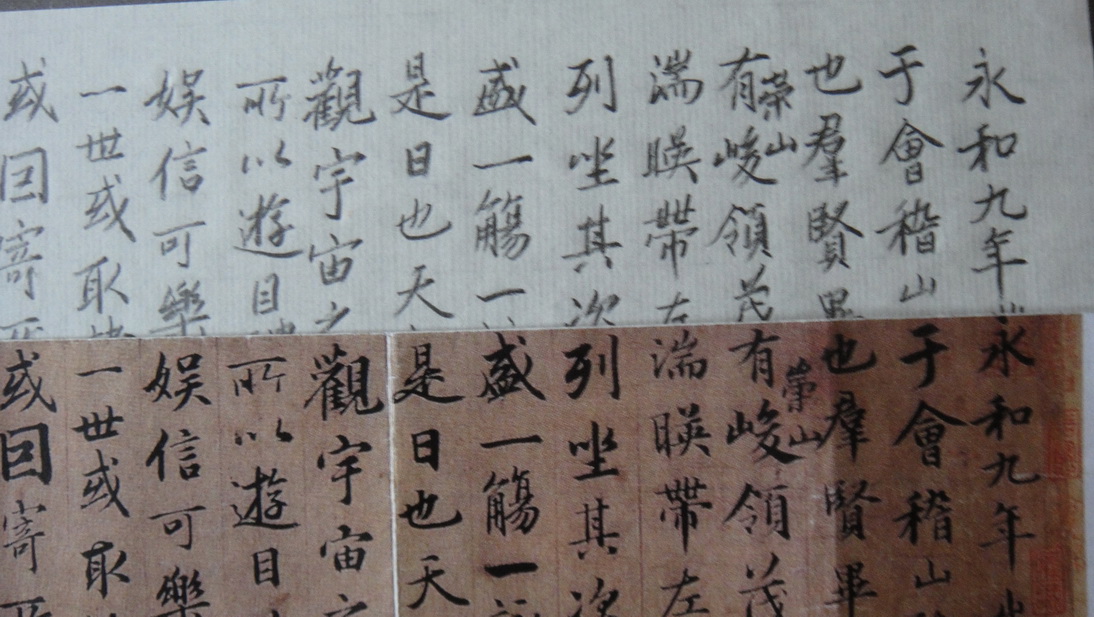 永和九年
于會稽山
也羣賢畢
有崇山峻領茂
湍暎帶左
列坐其次
盛一觴一
是日也天
觀宇宙之
所以遊目
娛信可樂
一世或取
或因寄所
永和九年
于會稽山
也羣賢畢
有崇山峻領茂
湍暎帶左
列坐其次
盛一觴一
是日也天
觀宇宙之
所以遊目
娛信可樂
一世或取
或因寄所